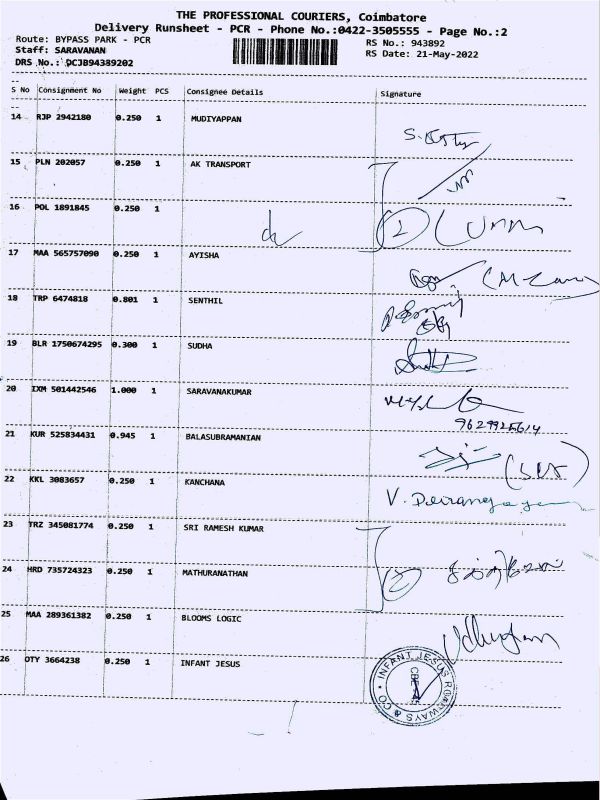 THE PROFESSIONAL COURIERS, Coimbatore
Delivery Runsheet - PCR - Phone No.:0422-3505555 - Page No.:2
Route: BYPASS PARK - PCR RS No.: 943892
Staff: SARAVANAN RS Date: 21-May-2022
DRS No.: DCJB94389202
S No Consignment No Weight PCS Consignee Details Signature
14 RJP 2942180 0.250 1 MUDIYAPPAN
15 PLN 202057 0.250 1 AK TRANSPORT
16 POL 1891845 0.250 1
2
17 MAA 565757090 0.250 1 AYISHA
18 TRP 6474818 0.801 1 SENTHIL
19 BLR 1750674295 0.300 1 SUDHA
20 IXM 501442546 1.000 1 SARAVANAKUMAR
21 KUR 525834431 0.945 1 BALASUBRAMANIAN
22 KKL 3083657 0.250 1 KANCHANA
23 TRZ 345081774 0.250 1 SRI RAMESH KUMAR
24 HRD 735724323 0.250 1 MATHURANATHAN
2
25 MAA 289361382 0.250 1 BLOOMS LOGIC
26 OTY 3664238 0.250 1 INFANT JESUS
INFANT JESUS ROADWAYS & CO